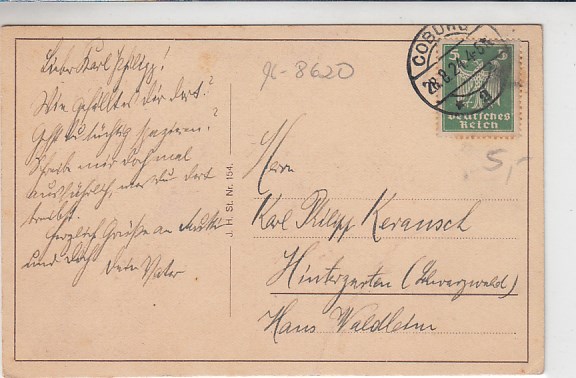 Lieber Karl Philipp!
Wie gefällt es dir dort?
Gehst du tüchtig spazieren?
Schreibe mir doch mal
ausführlich, was du dort
treibst.
Herzlich Grüße an Mutti
und dich
dein Vater
J. H. St. Nr. 154.
96-8620
COBURG
5 5
Deutsches
Reich
5,-
Herrn
Karl Philipp
Hinterzarten (Schwarzwald)
Haus Waldheim